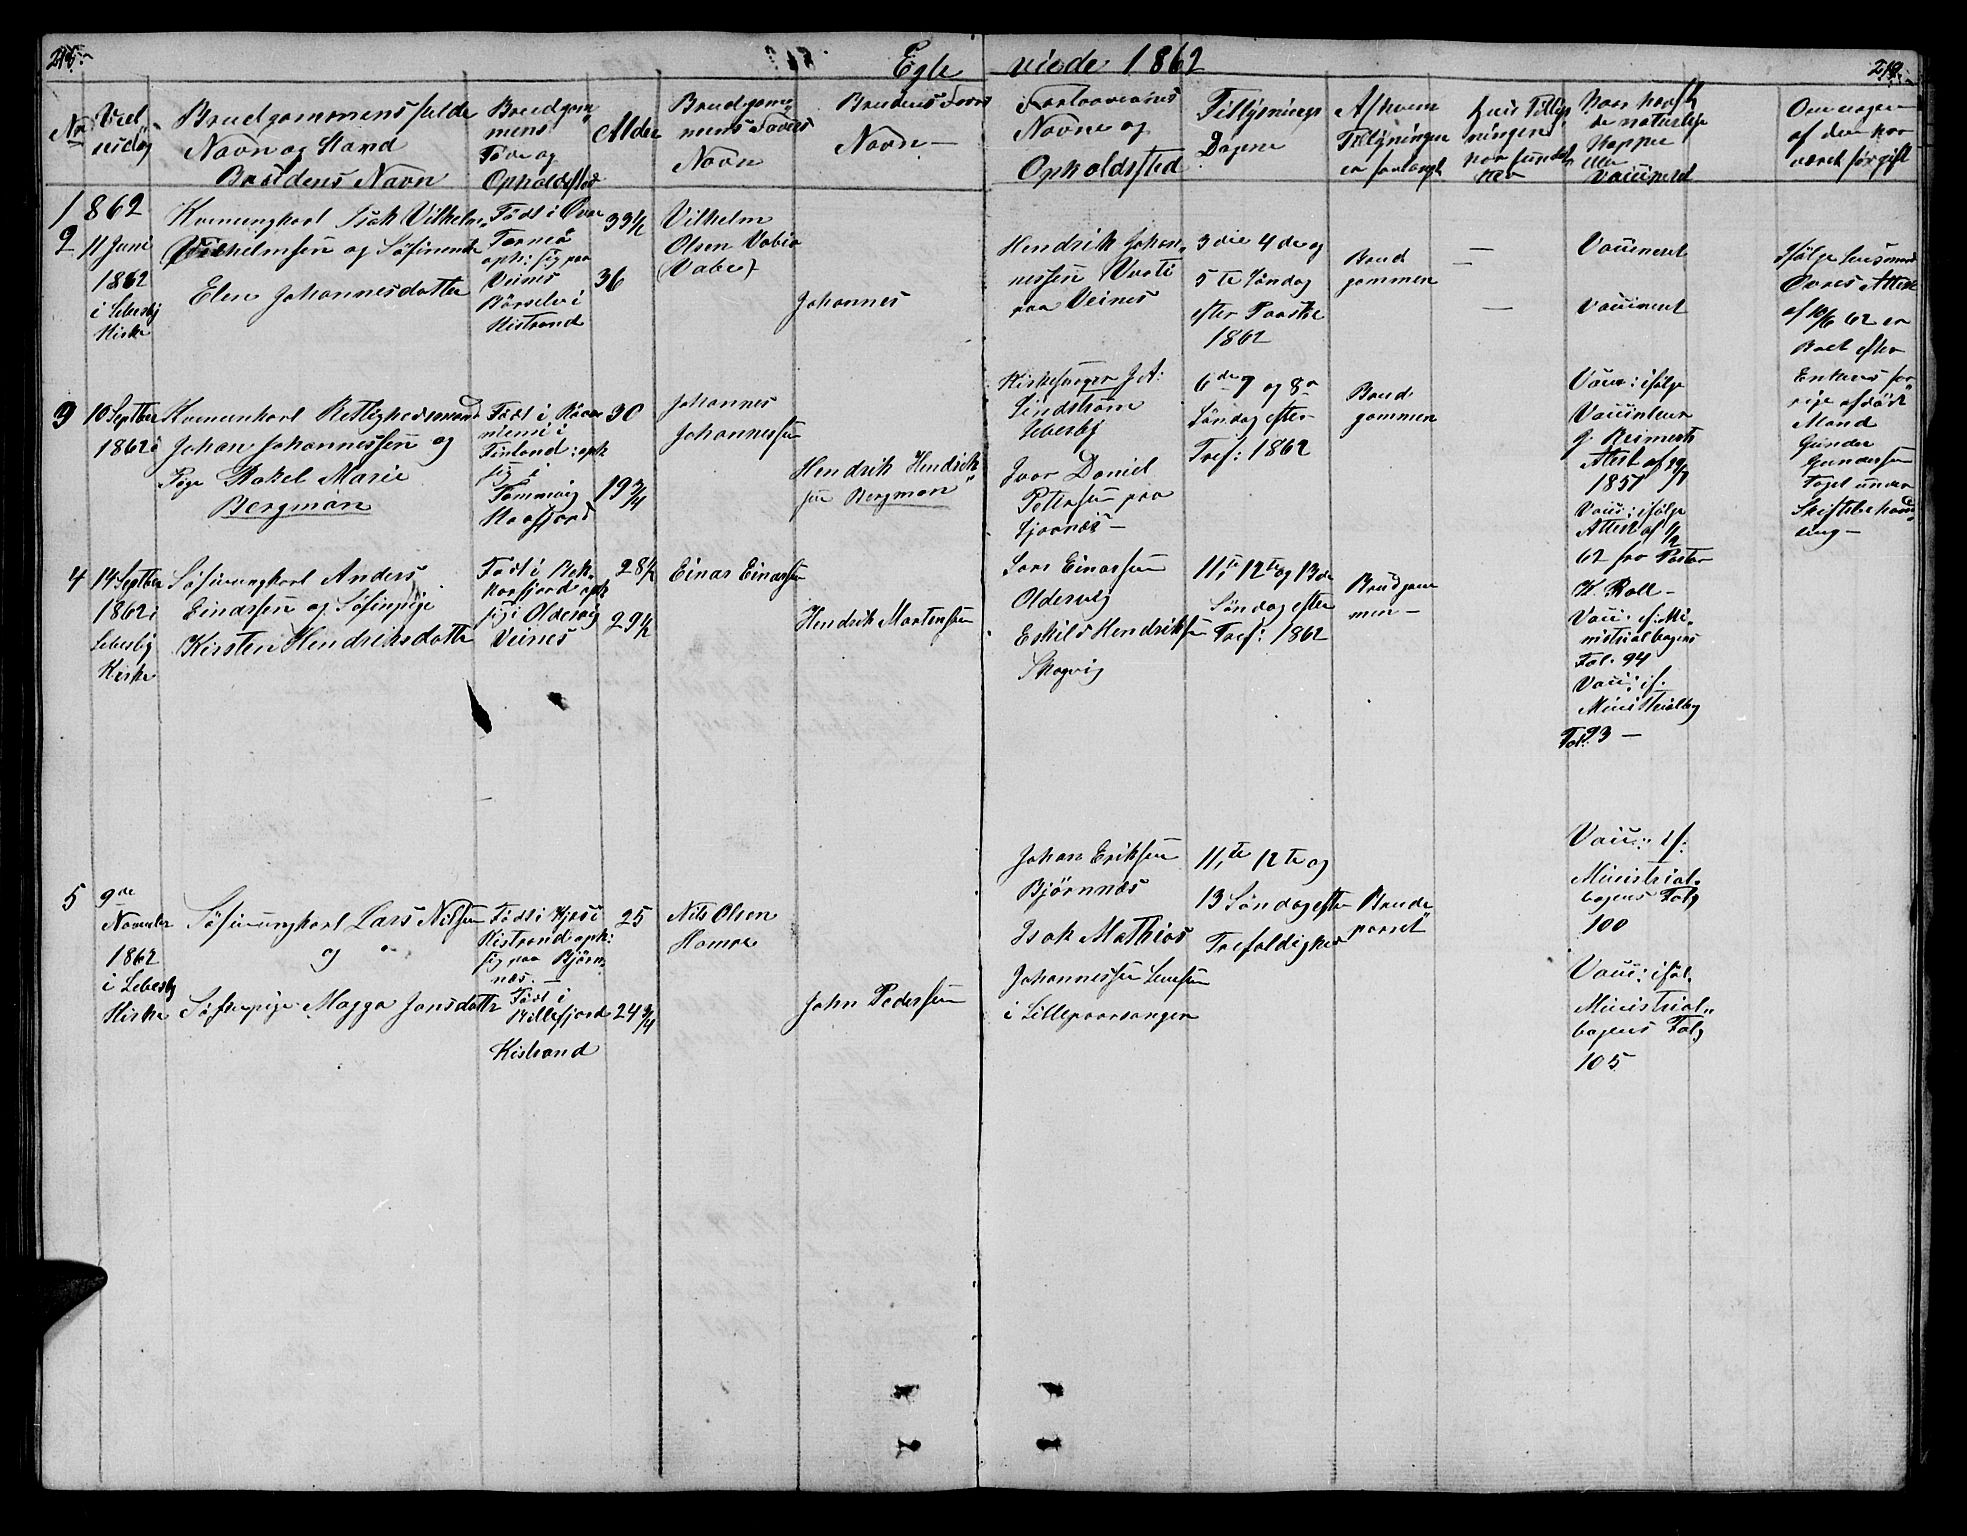 Egte viede 1862
No
Viel
sesdag
Brudgommens fulde
Navn og Stand
Brudens Navn
Brudgom
mens
Føde og
Opholdsted
Alder
Brudgom
mens Faders
Navn
Brudens Faders
Navn
Forloverens
Navne og
Opholdsted
Tillysnings
Dagene
Af hvem
Tillysningen
er forlangt
hvis Tillys
ningen
har fundet
sted
Naar havft
de naturlige
Kopper
eller
Vaccineret
Om nogen
af dem har
været før gift
1862
2
11 Juni
1862
i Lebesby
Kirke
Kvenungkarl Isak Vilhelm
Vilhelmsen og Søfinenke
Elen Johannesdatter
Født i Øvre
Torneå
oph: sig paa
Veines
Børselv i
Kistrand
33½
36
Vilhelm
Olsen Vabio
(Vabe)
Johannes
Hendrik Johan
nessen Vuoti
paa Veines
3die 4de og
5te Søndag
efter Paaske
1862
Brud
gommen
Vaccineret
Vaccineret
Ifølge Lensmand
Øvres Attest
af 10/6 62 er
Boet efter
Enkens for
rige afdøde
Mand
Gunder
Gundersen
Taget under
Skiftebehand
ling
3
10 Septber
1862
Kvenunkarl Rettighedsmand
Johan Johannessen og
Pige Rakel Marie
Bergman
Født i Rova
niemi i
Finland: oph
sig i
Tømmvig
Kaafjord
30
19¾
Johannes
Johannessen
Hendrik Hendrik
sen Bergman
Kirkesanger J. A.
Lindstrøm
Lebesby
Ivar Daniel
Pettersen paa
Ifjordnæs
6de 7 og 8de
Søndag efter
Tref: 1862
Brud
gommen
Vacc: ifølge
Vaccinteur
G. Reimerts
Attest af 29/7
1857
Vacc: ifølge
Attest af 1/2
62 fra Pastor
K. Roll
4
14 Septber
1862 i
Lebesby
Kirke
Søfinungkarl Anders
Einarsen og Søfinpige
Kirsten Hendriksdatter
Født i Bek
karfjord oph
sig i Oldervig
Veines
28½
29½
Einar Einarsen
Hendrik Mortensen
Lars Einarsen
Oldervig
Eskild Hendriksen
Skogvig
11te 12te og 13de
Søndag efter
Tref: 1862
Brudgom
men
Vacc: if: Mi
nistrialbogens
Fol. 94
Vacc: if.
Ministrialbog
Fol. 93
5
9de
November
1862
i Lebesby
Kirke
Søfinungkarl Lars Nilsen
og
Søfinpige Magga Jonsdatter
Født i Kjæs i
Kistrand oph:
sig paa Bjørn
næs
Født i
Billefjord
Kistrand
25
24¾
Nils Olsen
Hompe
John Pedersen
Johan Eriksen
Bjørnnæs
Isak Mathias
Johannessen
i Lilleporsanger
11te 12te og
13 Søndag efter
Trefoldighed
Brude
parret
Vacc: if:
Ministrial
bogens Fol
100
Vacc: iføl.
Ministrial
bogens Fol
105